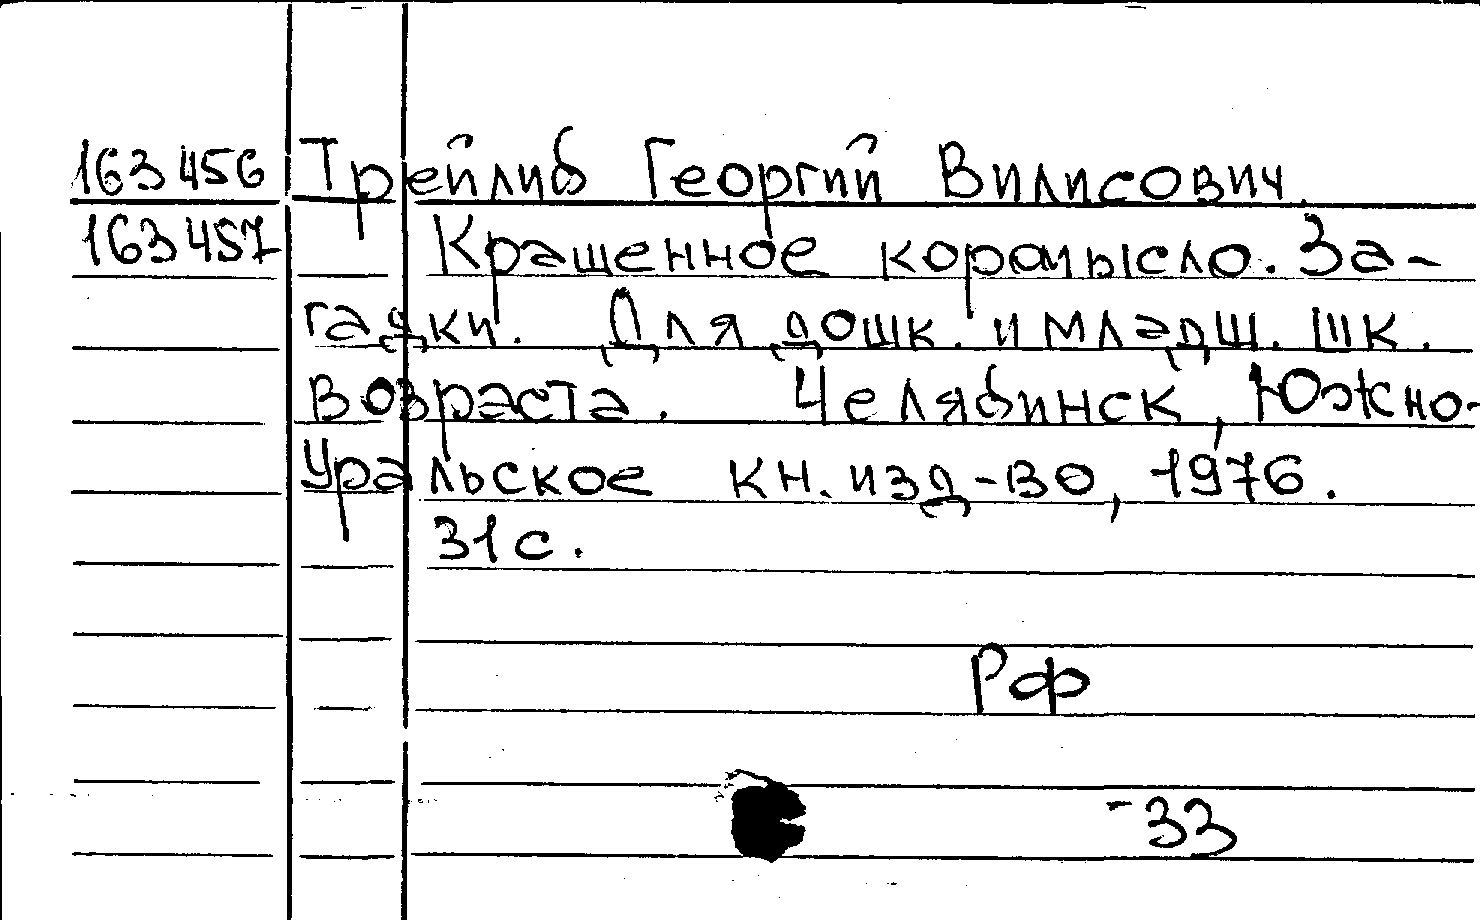 163456 Трейлиб Георгий Вилисович.
163457 Крашенное коромысло. За-
гадки. Для дошк. и младш. шк.
возраста. Челябинск, Южно-
Уральское кн. изд-во, 1976.
31с.
РФ
-33